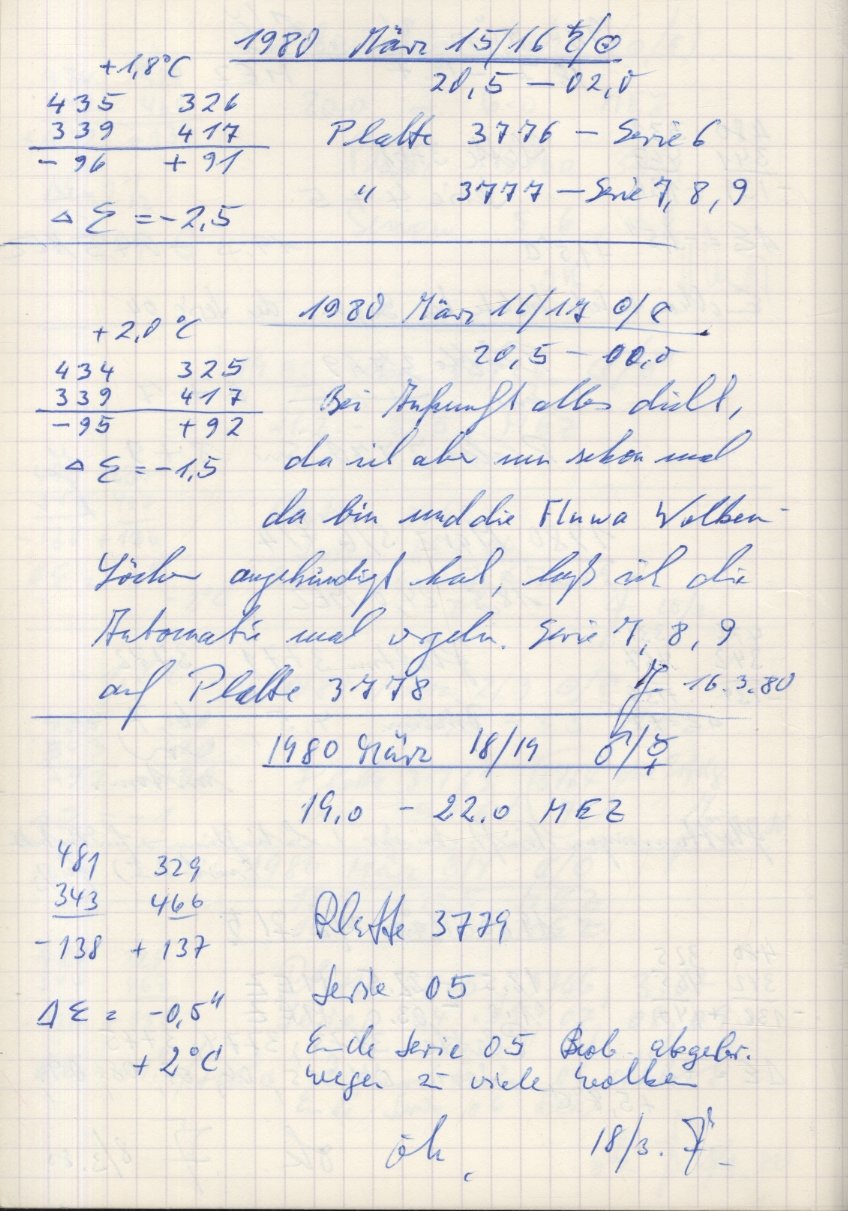 1980 März 15/16 ♄/☉
+1,8°C
20,5 – 02,0
435 326
339 417
- 96 + 91
Platte 3776 – Serie 6
" 3777 – Serie 7, 8, 9
Δ Σ = -2,5
1980 März 16/17 ☉/☾
+2,0 °C
20,5 – 00,0
434 325
339 417
- 95 + 92
Δ Σ = -1,5
Bei Ankunft alles dicht,
da ich aber nun schon mal
da bin und die Fluwa Wolken-
Löcher angekündigt hat, laß ich die
Automatik mal orgeln. Serie 7, 8, 9
auf Platte 3778
16.3.80
1980 März 18/19 ♂/☿
19,0 – 22,0 MEZ
481 329
343 466
-138 + 137
Platte 3779
Serie 05
Δ Σ = -0,5"
+2°C
Ende Serie 05 Beob. abgebr.
wegen zu viele Wolken
18/3.